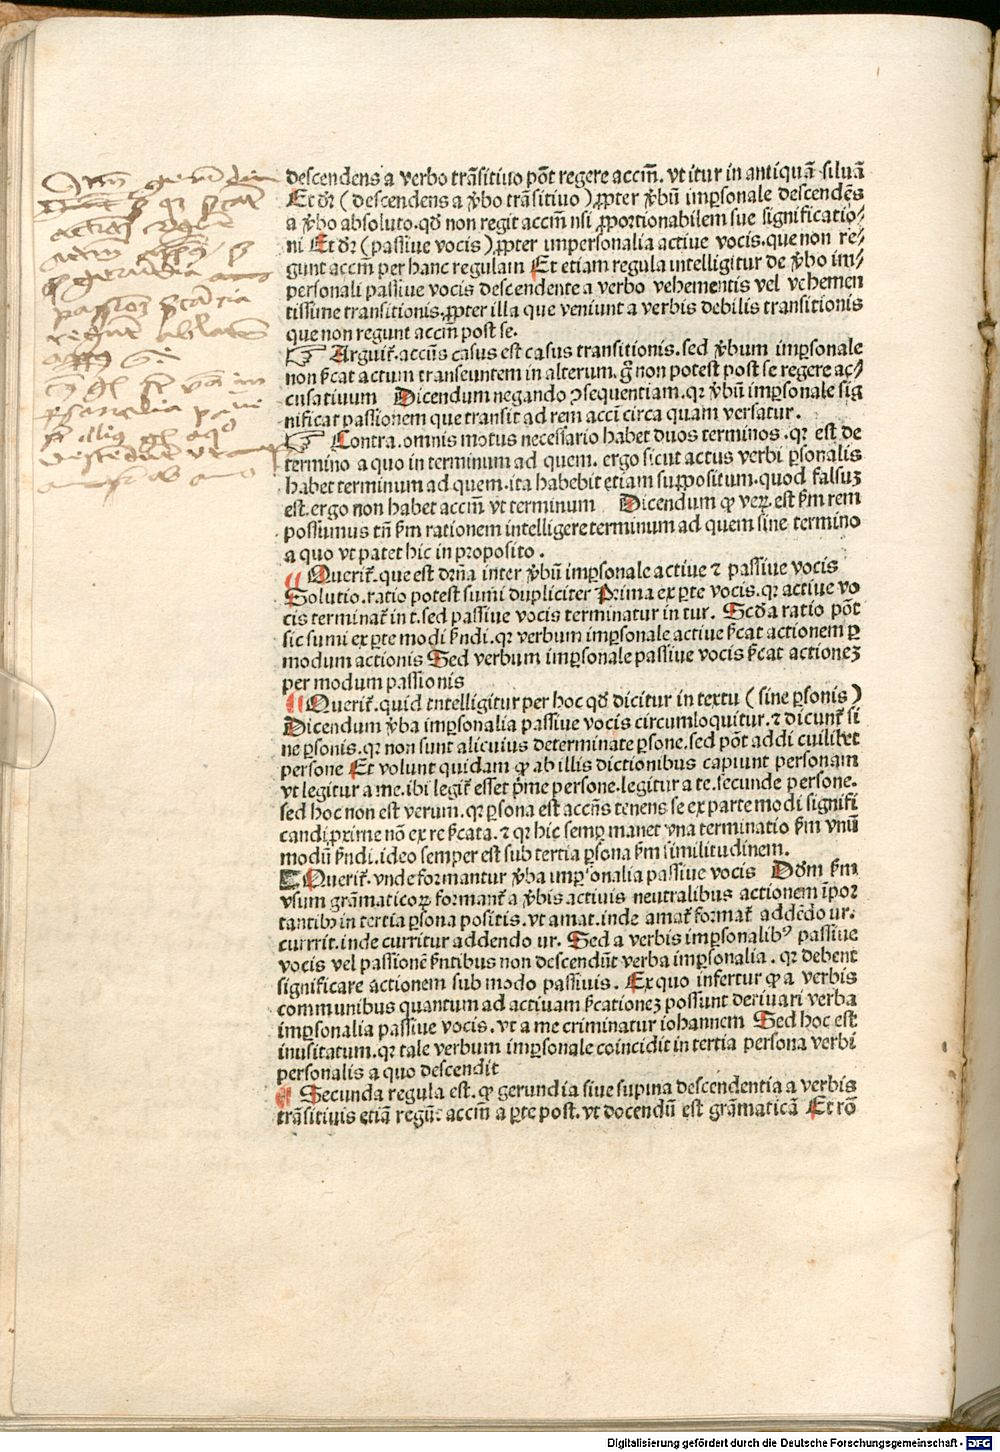 descendens a verbo trãsitiuo põt regere accm̃. vt itur in antiquã siluã
Et dr̃ (descendens a v̾bo trãsitiuo) ꝓpter v̾bũ imꝑsonale descendẽs
a v̾bo absoluto. qđ non regit accm̃ nisi ꝓportionabilem sue significatio⸗
ni Et dr̃ (passiue vocis) ꝓpter impersonalia actiue vocis. que non re⸗
gunt accm̃ per hanc regulam Et etiam regula intelligitur de v̾bo im⸗
personali passiue vocis descendente a verbo vehementis vel vehemen
tissime transitionis. ꝓpter illa que veniunt a verbis debilis transitionis
que non regunt accm̃ post se.
☞ Arguit̃. accũs casus est casus transitionis. sed v̾bum imꝑsonale
non s̃cat actum transeuntem in alterum. g̊ non potest post se regere ac⸗
cusatiuum Dicendum negando ꝯsequentiam. qꝛ v̾bũ imꝑsonale sig
nificat passionem que transit ad rem acci circa quam versatur.
☞ Contra. omnis motus necessario habet duos terminos. qꝛ est de
termino a quo in terminum ad quem. ergo sicut actus verbi ꝑsonalis
habet terminum ad quem. ita habebit etiam suppositum. quod falsuz
est. ergo non habet accm̃ vt terminum Dicendum ꝙ veꝝ est s̃m rem
possumus tñ s̃m rationem intelligere terminum ad quem sine termino
a quo vt patet hic in proposito.
Querit̃. que est drña inter v̾bũ imꝑsonale actiue ⁊ passiue vocis
Solutio. ratio potest sumi dupliciter Prima ex ꝑte vocis. qꝛ actiue vo
cis terminat̃ in t. sed passiue vocis terminatur in tur. Scđa ratio põt
sic sumi ex ꝑte modi s̃ndi. qꝛ verbum imꝑsonale actiue s̃cat actionem ꝑ
modum actionis Sed verbum imꝑsonale passiue vocis s̃cat actionez
per modum passionis
Querit̃. quid intelligitur per hoc qđ dicitur in textu (sine ꝑsonis)
Dicendum v̾ba imꝑsonalia passiue vocis circumloquitur. ⁊ dicunt̃ si
ne ꝑsonis. qꝛ non sunt alicuius determinate ꝑsone. sed põt addi cuilibet
persone Et volunt quidam ꝙ ab illis dictionibus capiunt personam
vt legitur a me. ibi legit̃ esset p̃me persone. legitur a te. secunde persone.
sed hoc non est verum. qꝛ ꝑsona est accñs tenens se ex parte modi signifi
candi prime nõ ex re s̃cata. ⁊ qꝛ hic semꝑ manet vna terminatio s̃m vnũ
modũ s̃ndi. ideo semper est sub tertia ꝑsona s̃m similitudinem.
Querit̃. vnde formantur v̾ba imꝑsonalia passiue vocis Dđm s̃m
vsum grãmaticoꝝ formant̃ a v̾bis actiuis neutralibus actionem ĩpor
tantibꝰ in tertia ꝑsona positis. vt amat. inde amat̃ format̃ addẽdo ur.
currit. inde curritur addendo ur. Sed a verbis imꝑsonalibꝰ passiue
vocis vel passionẽ s̃ntibus non descendũt verba imꝑsonalia. qꝛ debent
significare actionem sub modo passiuis. Ex quo infertur ꝙ a verbis
communibus quantum ad actiuam s̃cationez possunt deriuari verba
imꝑsonalia passiue vocis. vt a me criminatur iohannem Sed hoc est
inusitatum. qꝛ tale verbum imꝑsonale coincidit in tertia persona verbi
personalis a quo descendit
Secunda regula est. ꝙ gerundia siue supina descendentia a verbis
trãsitiuis etiã regũt accm̃ a ꝑte post. vt docendũ est grãmaticã Et rõ
Digitalisierung gefördert durch die Deutsche Forschungsgemeinschaft - DFG